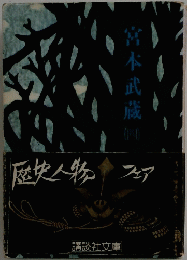 宮本武蔵
歴史人物 フェア
講談社文庫